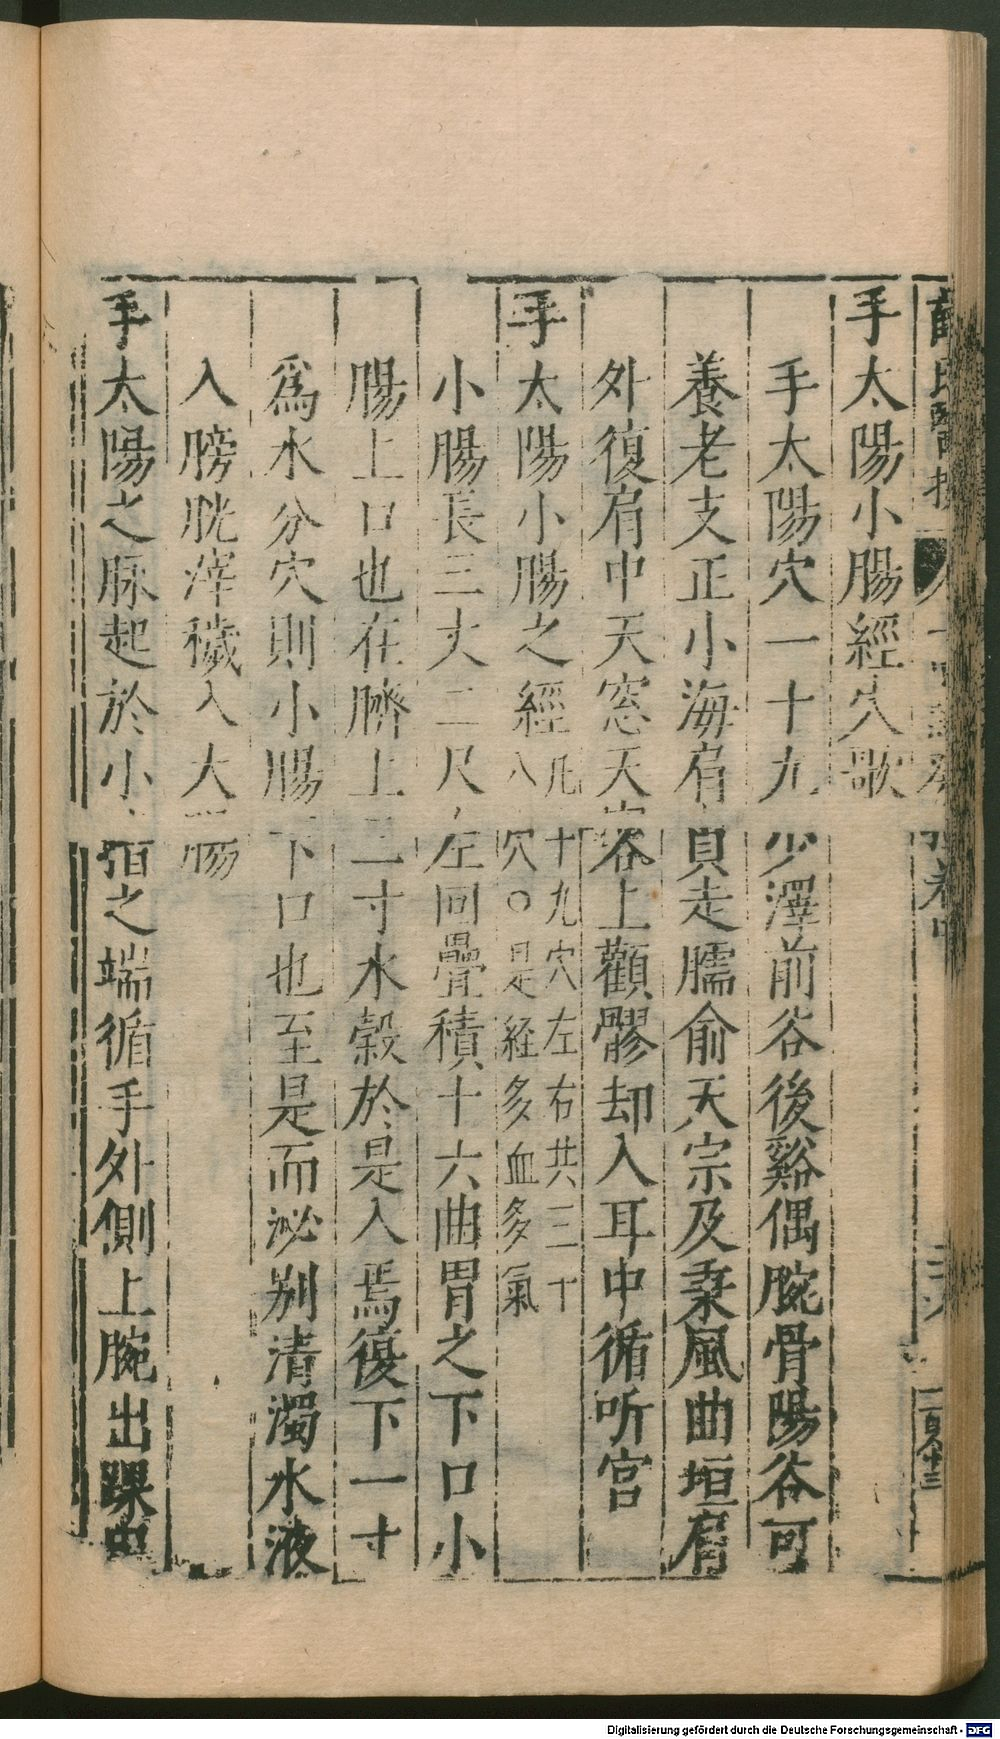 薛氏醫按
手太陽小腸經穴歌
手太陽穴一十九少澤前谷後谿偶腕骨陽谷可
養老支正小海肩貞走臑俞天宗及秉風曲垣肩
外復肩中天窓天容上顴髎却入耳中循听宮
手太陽小腸之經凡十九穴左右共三十八穴○是経多血多氣
小腸長三丈二尺左回疊積十六曲胃之下口小
腸上口也在臍上二寸水榖於是入焉復下一寸
爲水分穴則小腸下口也至是而泌别清濁水液
入膀胱滓穢入大腸
手太陽之脉起於小指之端循手外側上腕出踝中
Digitalisierung gefördert durch die Deutsche Forschungsgemeinschaft - DFG